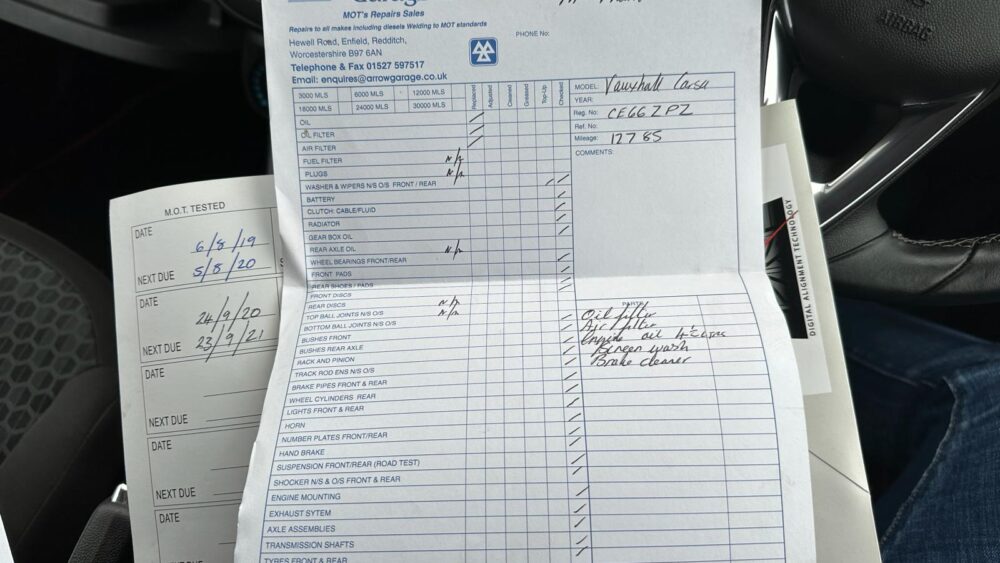 MOT's Repairs Sales
Repairs to all makes including diesels Welding to MOT standards
Hewell Road, Enfield, Redditch,
Worcestershire B97 6AN
Telephone & Fax 01527 597517
Email: enquires@arrowgarage.co.uk
PHONE No:
3000 MLS 6000 MLS 12000 MLS
18000 MLS 24000 MLS 30000 MLS
Replaced Adjusted Cleaned Greased Top-Up Checked
MODEL: Vauxhall Corsa
YEAR:
Reg. No: CE66 ZPZ
Ref. No:
Mileage: 12785
COMMENTS:
OIL
OIL FILTER
AIR FILTER
FUEL FILTER N/A
PLUGS N/A
WASHER & WIPERS N/S O/S FRONT / REAR
BATTERY
CLUTCH: CABLE/FLUID
RADIATOR
GEAR BOX OIL
REAR AXLE OIL N/A
WHEEL BEARINGS FRONT/REAR
FRONT PADS
REAR SHOES / PADS
FRONT DISCS
REAR DISCS N/A
TOP BALL JOINTS N/S O/S N/A
BOTTOM BALL JOINTS N/S O/S
BUSHES FRONT
BUSHES REAR AXLE
RACK AND PINION
TRACK ROD ENS N/S O/S
BRAKE PIPES FRONT & REAR
WHEEL CYLINDERS REAR
LIGHTS FRONT & REAR
HORN
NUMBER PLATES FRONT/REAR
HAND BRAKE
SUSPENSION FRONT/REAR (ROAD TEST)
SHOCKER N/S & O/S FRONT & REAR
ENGINE MOUNTING
EXHAUST SYTEM
AXLE ASSEMBLIES
TRANSMISSION SHAFTS
TYRES FRONT & REAR
PARTS
Oil filter
Air filter
Engine oil
Screen wash
Brake cleaner
M.O.T. TESTED
DATE 6/8/19
NEXT DUE 5/8/20
DATE 24/9/20
NEXT DUE 23/9/21
DATE
NEXT DUE
DATE
NEXT DUE
DATE
DIGITAL ALIGNMENT TECHNOLOGY
AIRBAG